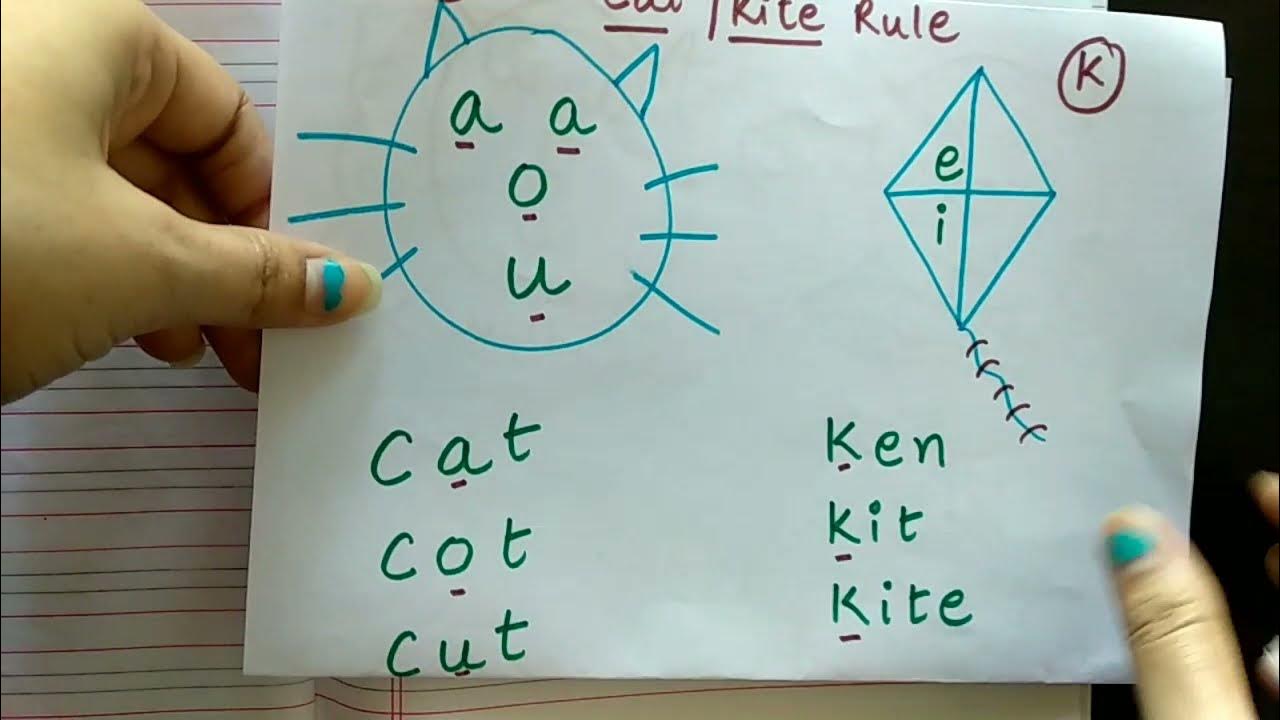 Cat / Kite Rule
K
a a
o
u
e
i
cat
cot
cut
Ken
kit
kite